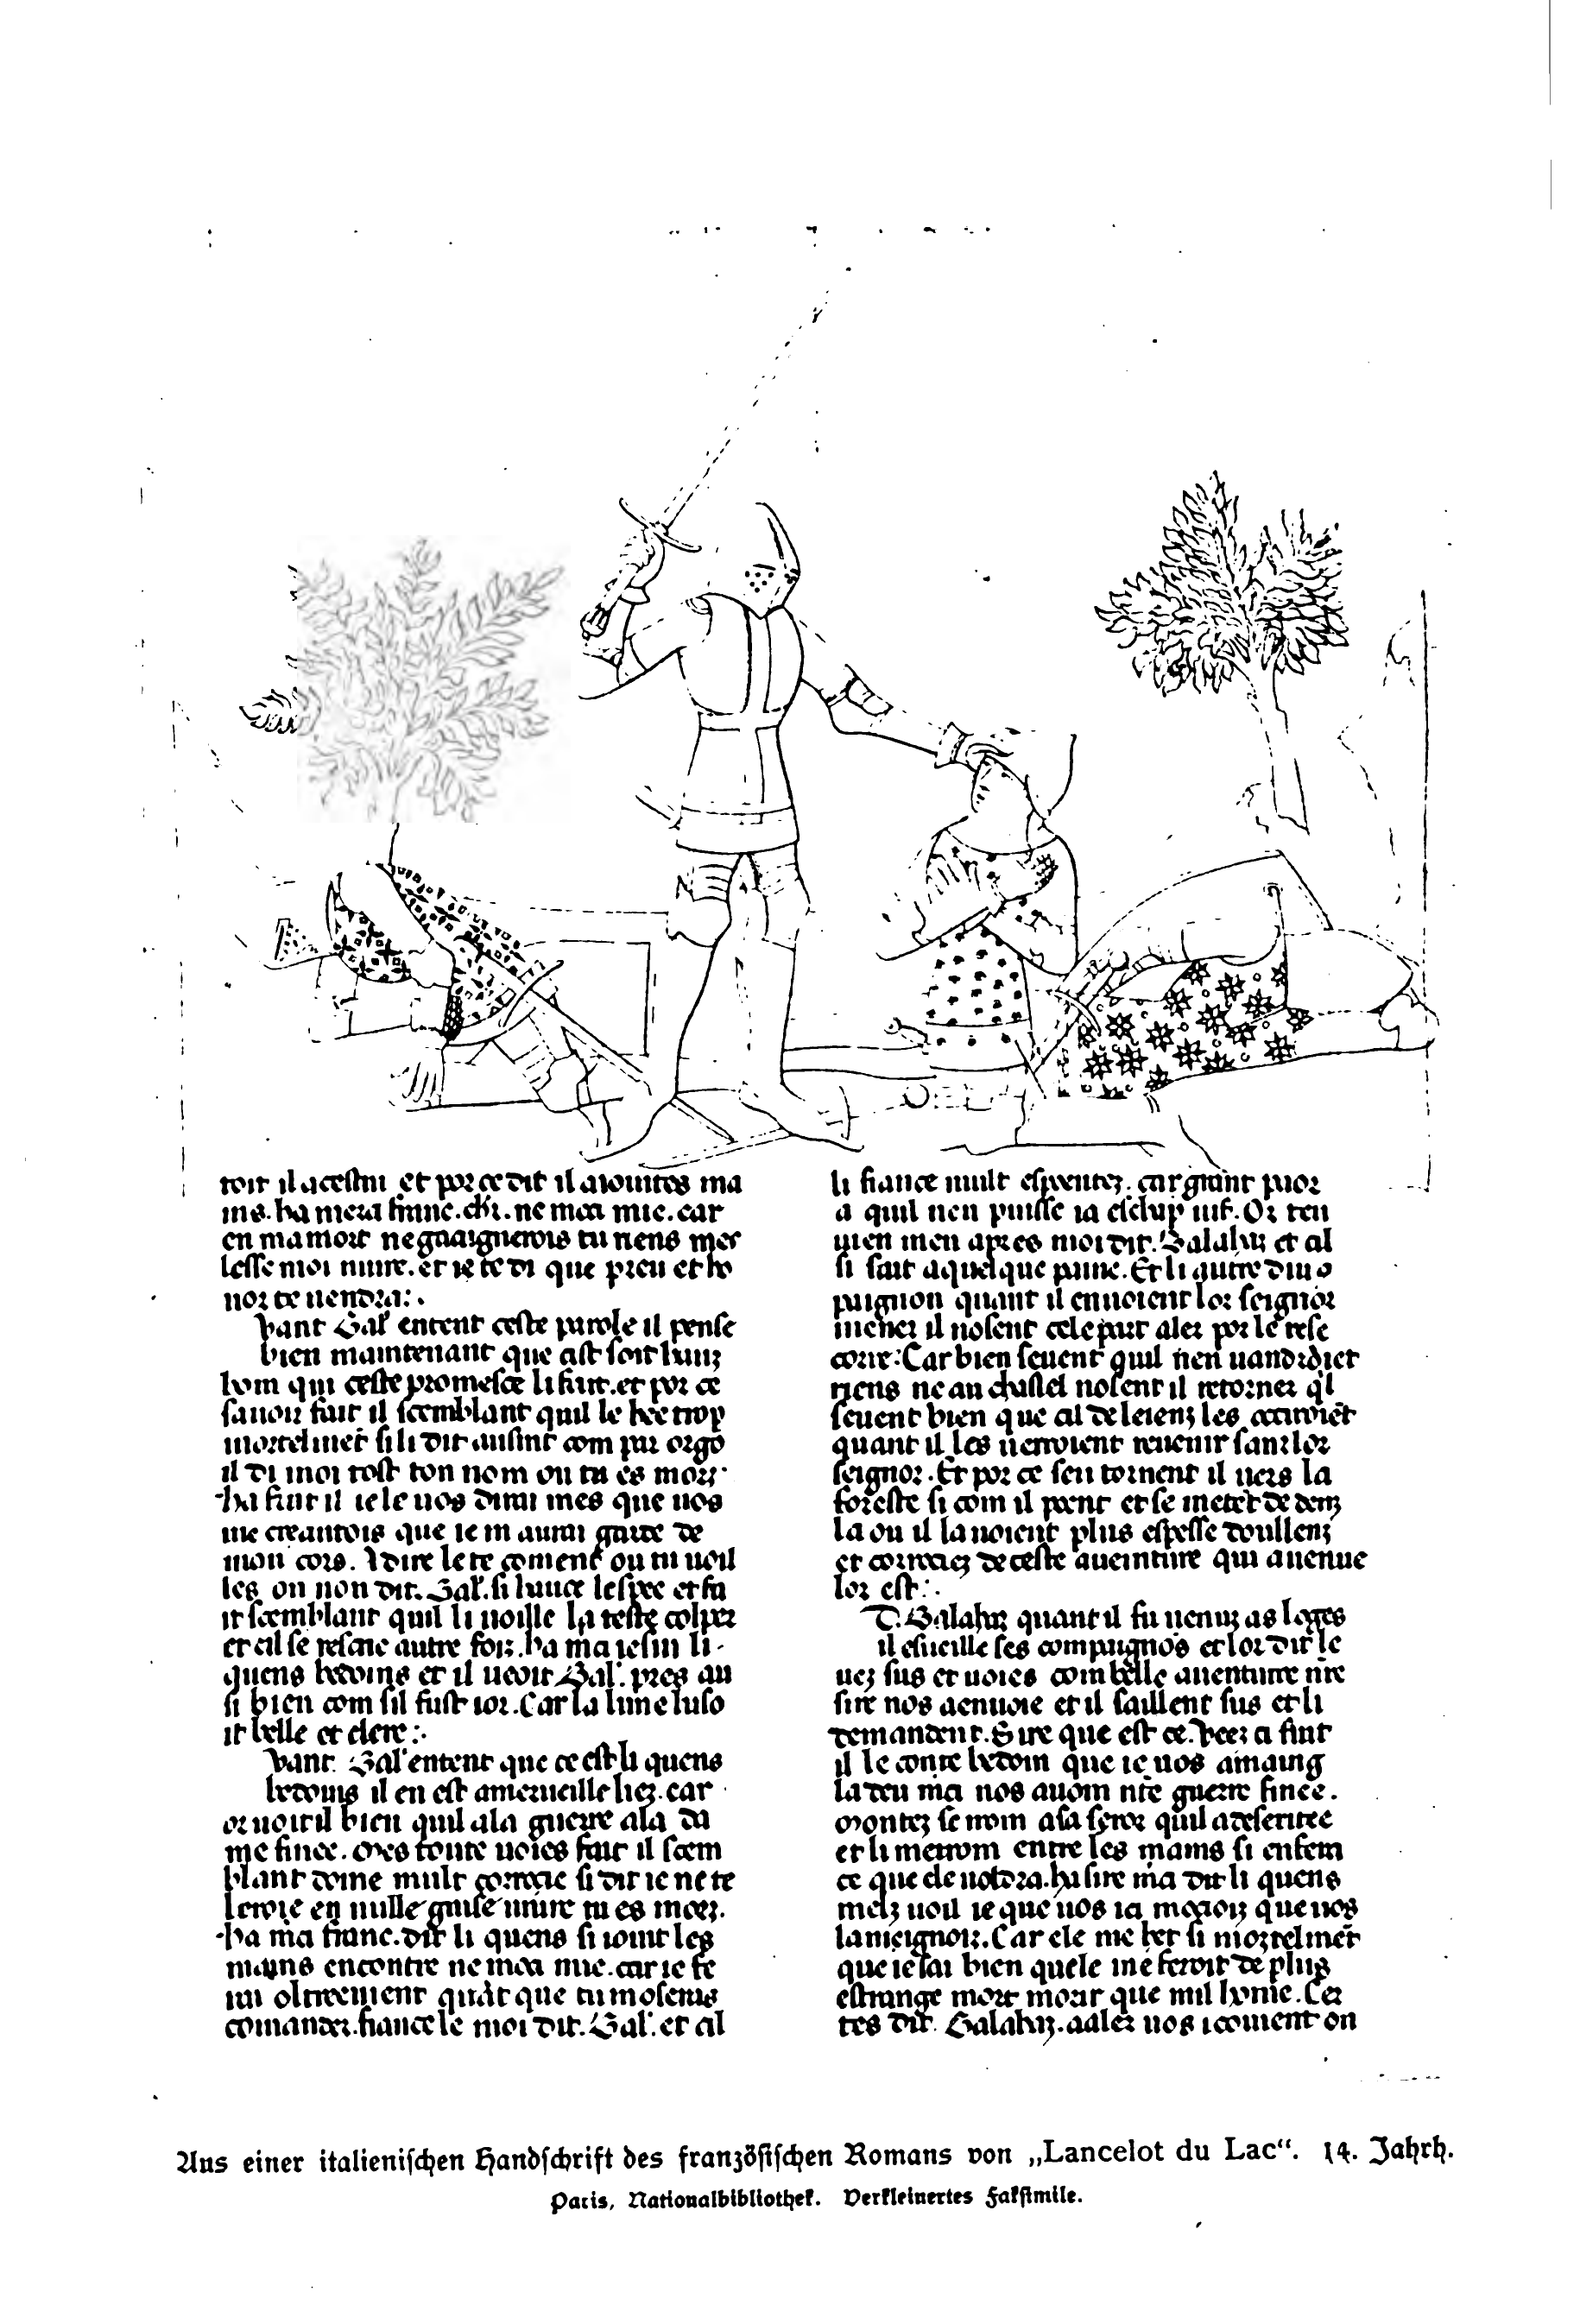 toit il acestui et por ce dit il aiointes ma
ins. ha merci franc. chr. ne moci mie. car
en ma mort ne gaaignerois tu riens mes
lesse moi uiure. et ie te di que preu et ho
nor te uendra:.
Quant Gal' entent ceste parole il pense
bien maintenant que cist soit hauz
hom qui ceste promesce li fait. et por ce
sauoir fait il scemblant quil le hee trop
mortelmēt si li dit ausint com par orgo
il di moi tost ton nom ou tu es morz.
ha fait il ie le uos dirai mes que uos
me creantois que ie m aurai garde de
mon cors. A dire le te coment ou tu uoil
les ou non dit. Gal'. si hauce lespee et fa
it scemblant quil li uoille la teste colper
et cil se rescrie autre foiz. ha ma ie sui li
quens bedoins et il ueoit Gal'. pres au
si bien com sil fust ior. Car la lune luso
it belle et clere:.
Quant. Gal' entent que ce est li quens
bedoins il en est amerueille liez. car
or uoit il bien quil ala guerre ala da
me finee. Mes toute uoies fait il scem
blant dome mult corrocie si dit ie ne te
leroie en nulle guise uiure tu es morz.
ha ma franc. dit li quens si ioint les
mains encontre ne moci mie. car ie fe
rai oltreement quāt que tu moseras
comander. fiance le moi dit. Gal'. et cil
li fiance mult espoentez. car grant paor
a quil nen puisse ia eschap uif. Or ten
uien men apres moi dit. Galahz et cil
si fait aquelque paine. Et li autre dui o
paignon quant il enuoient lor seignor
mener il nosent cele part aler por le rese
corre: Car bien seuent quil nen uandrdiet
riens ne au chastel nosent il retorner q'l
seuent bien que cil de leienz les occiroiēt
quant il les uerroient reuenir sanz lor
seignor. Et por ce sen tornent il uers la
foreste si com il poent et se metēt de denz
la ou il la uoient plus espesse doullenz
et corrociez de ceste aueinture qui auenue
lor est:.
D. Galahz quant il fu uenuz as loges
il esueille ses compaignōs et lor dit le
uez sus et uoies com belle auenture nr̄e
sire nos aenuoie et il saillent sus et li
demandent. Sire que est ce. Veez ci fait
il le conte bedoin que ie uos amaing
la deu mci nos auom nr̄e guerre finee.
Montez se irom a sa seror quil a deseritee
et li metrom entre les mains si enfem
ce que ele uoldra. ha sire ma dit li quens
melz uoil ie que uos ici mocioiz que uos
la mi eignoiz. Car ele me het si mortelmēt
que ie sai bien quele me feroit de plus
estrange mort morir que mil home. Cer
tes dit. Galahz. aaler uos i couient on
Aus einer italienischen Handschrift des französischen Romans von „Lancelot du Lac“. 14. Jahrh.
Paris, Nationalbibliothek. Verkleinertes Faksimile.